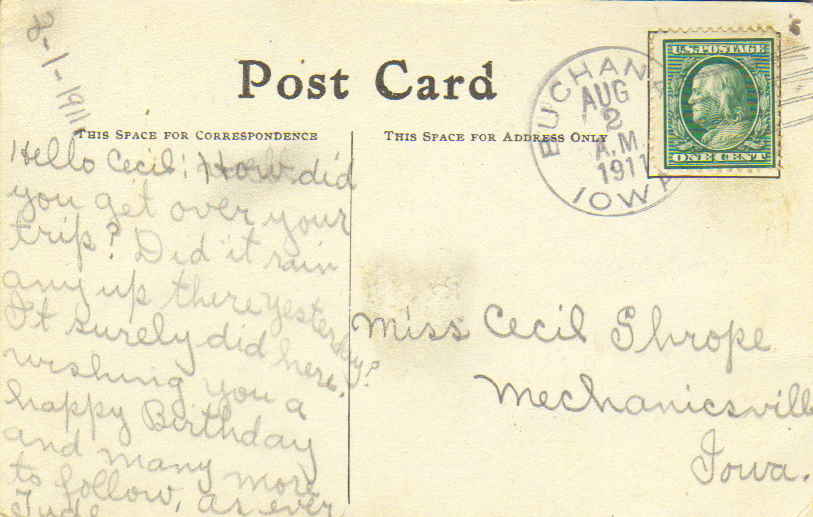 8-1-1911
Post Card
THIS SPACE FOR CORRESPONDENCE
THIS SPACE FOR ADDRESS ONLY
BUCHANA
AUG
2
A.M
1911
IOWA
U.S. POSTAGE
ONE CENT
Hello Cecil! How did
you get over your
trip? Did it rain
any up there yesterday?
It surely did here.
wishing you a
happy Birthday
and many more
to follow, as ever
Miss Cecil Shrope
Mechanicsvill
Iowa.